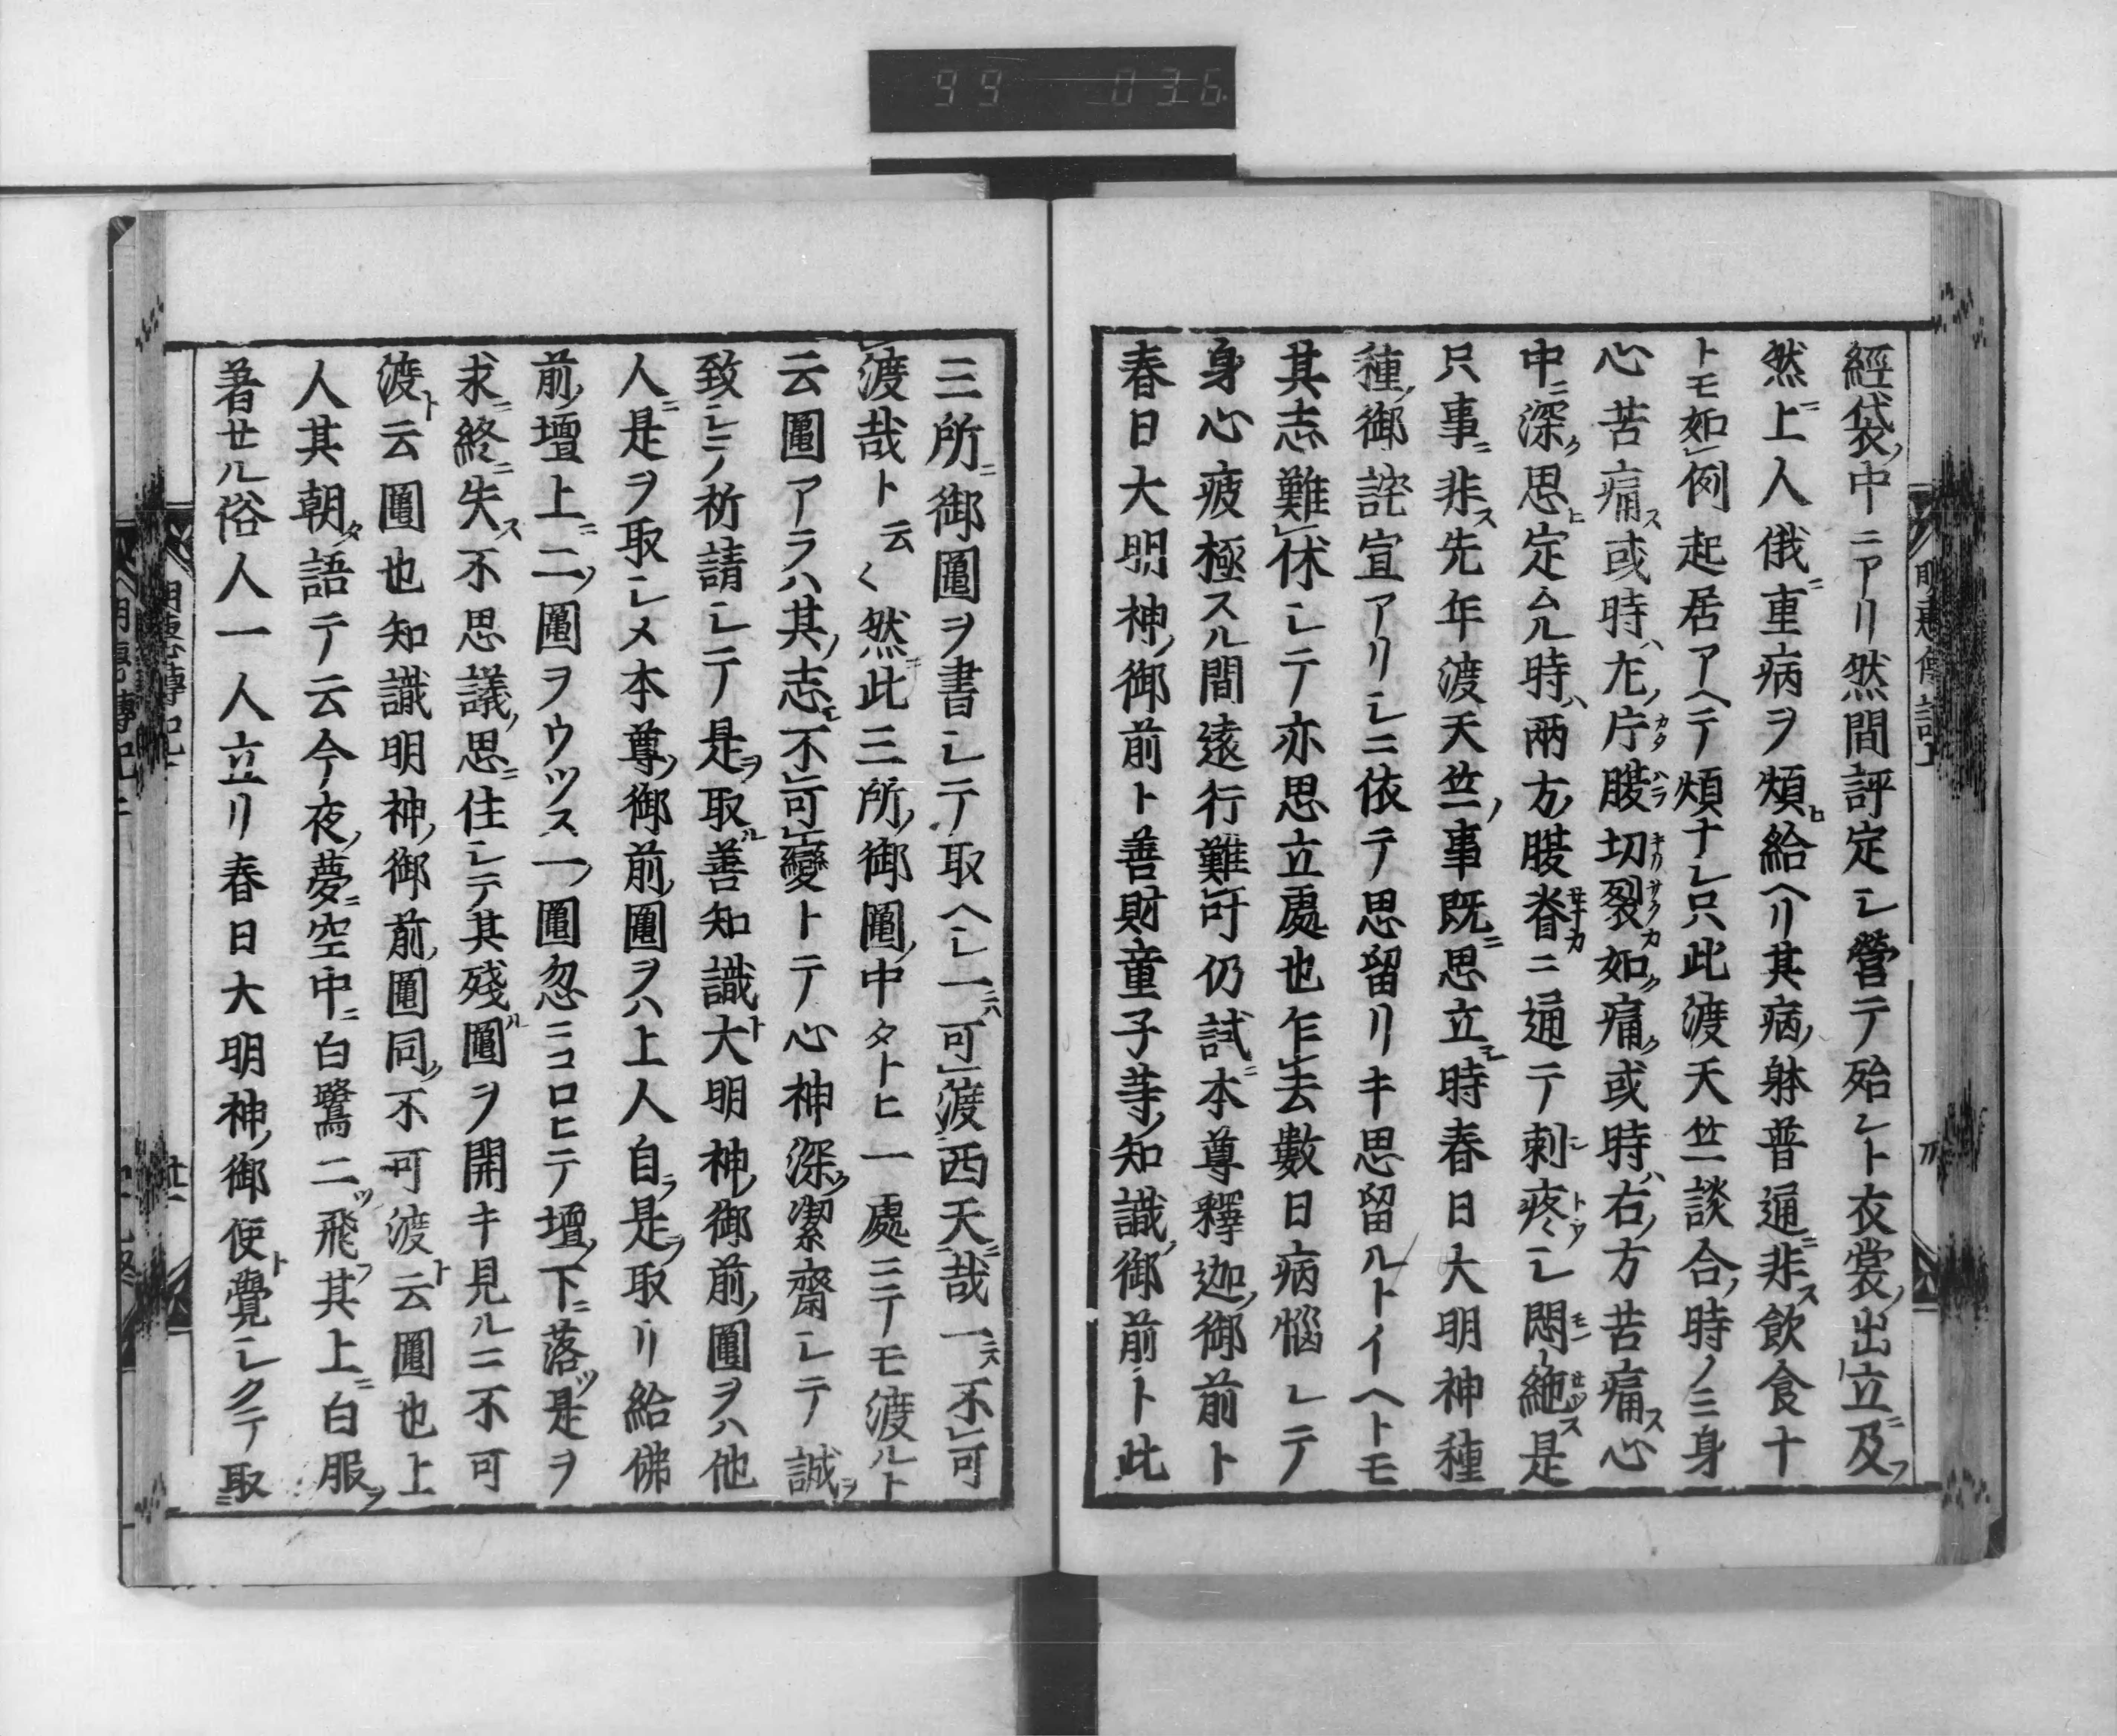 99 036
經袋ノ中ニアリ然間評定シ營テ殆シト衣裳ノ出立ニ及フ
然ニ上人俄ニ重病ヲ煩ヒ給ヘリ其病ノ躰普通ニ非ス飲食十
トモ如例起居アヘテ煩ナシ只此渡天竺談合ノ時ノミ身
心苦痛ス或時ハ左ノ片腹切裂カ如ク痛ク或時ハ右ノ方苦痛ス心
中ニ深ク思ヒ定ムル時ハ兩方ノ腹脊ニ通テ刺疼シ悶絶ス是
只事ニ非ス先年渡天竺ノ事既ニ思立シ時春日大明神種
種ノ御詫宣アリシニ依テ思留リキ思留ルトイヘトモ
其志難伏シテ亦思立處也乍去數日病惱シテ
身心疲極スル間遠行難叶仍試ニ本尊釋迦ノ御前ト
春日大明神ノ御前ト善財童子等ノ知識ノ御前ト此
三所ニ御圖ヲ書シテ取ヘシ一ニハ可渡西天ニ哉一ニハ不可
渡哉ト云〱然ニ此三所ノ御圖ノ中タトヒ一處ニテモ渡ルト
云圖アラハ其ノ志モ不可變トテ心神深ク潔齋シテ誠ヲ
致シテノ祈請シテ是ヲ取ル善知識ト大明神ノ御前ノ圖ヲハ他
人ニ是ヲ取シメ本尊ノ御前ノ圖ヲハ上人自ラ是ヲ取リ給佛
前ノ壇上ニ二ノ圖ヲウツス一ノ圖忽ニコロヒテ壇ノ下ニ落ツ是ヲ
求ニ終ニ失ス不思議ノ思ニ住シテ其殘ル圖ヲ開キ見ルニ不可
渡ト云圖也知識明神ノ御前ノ圖同ク不可渡ト云圖也上
人其朝タ語テ云今夜ノ夢ニ空中ニ白鷺二ツ飛フ其上ニ白服ヲ
著せル俗人一人立リ春日大明神ノ御使ト覺シクテ取